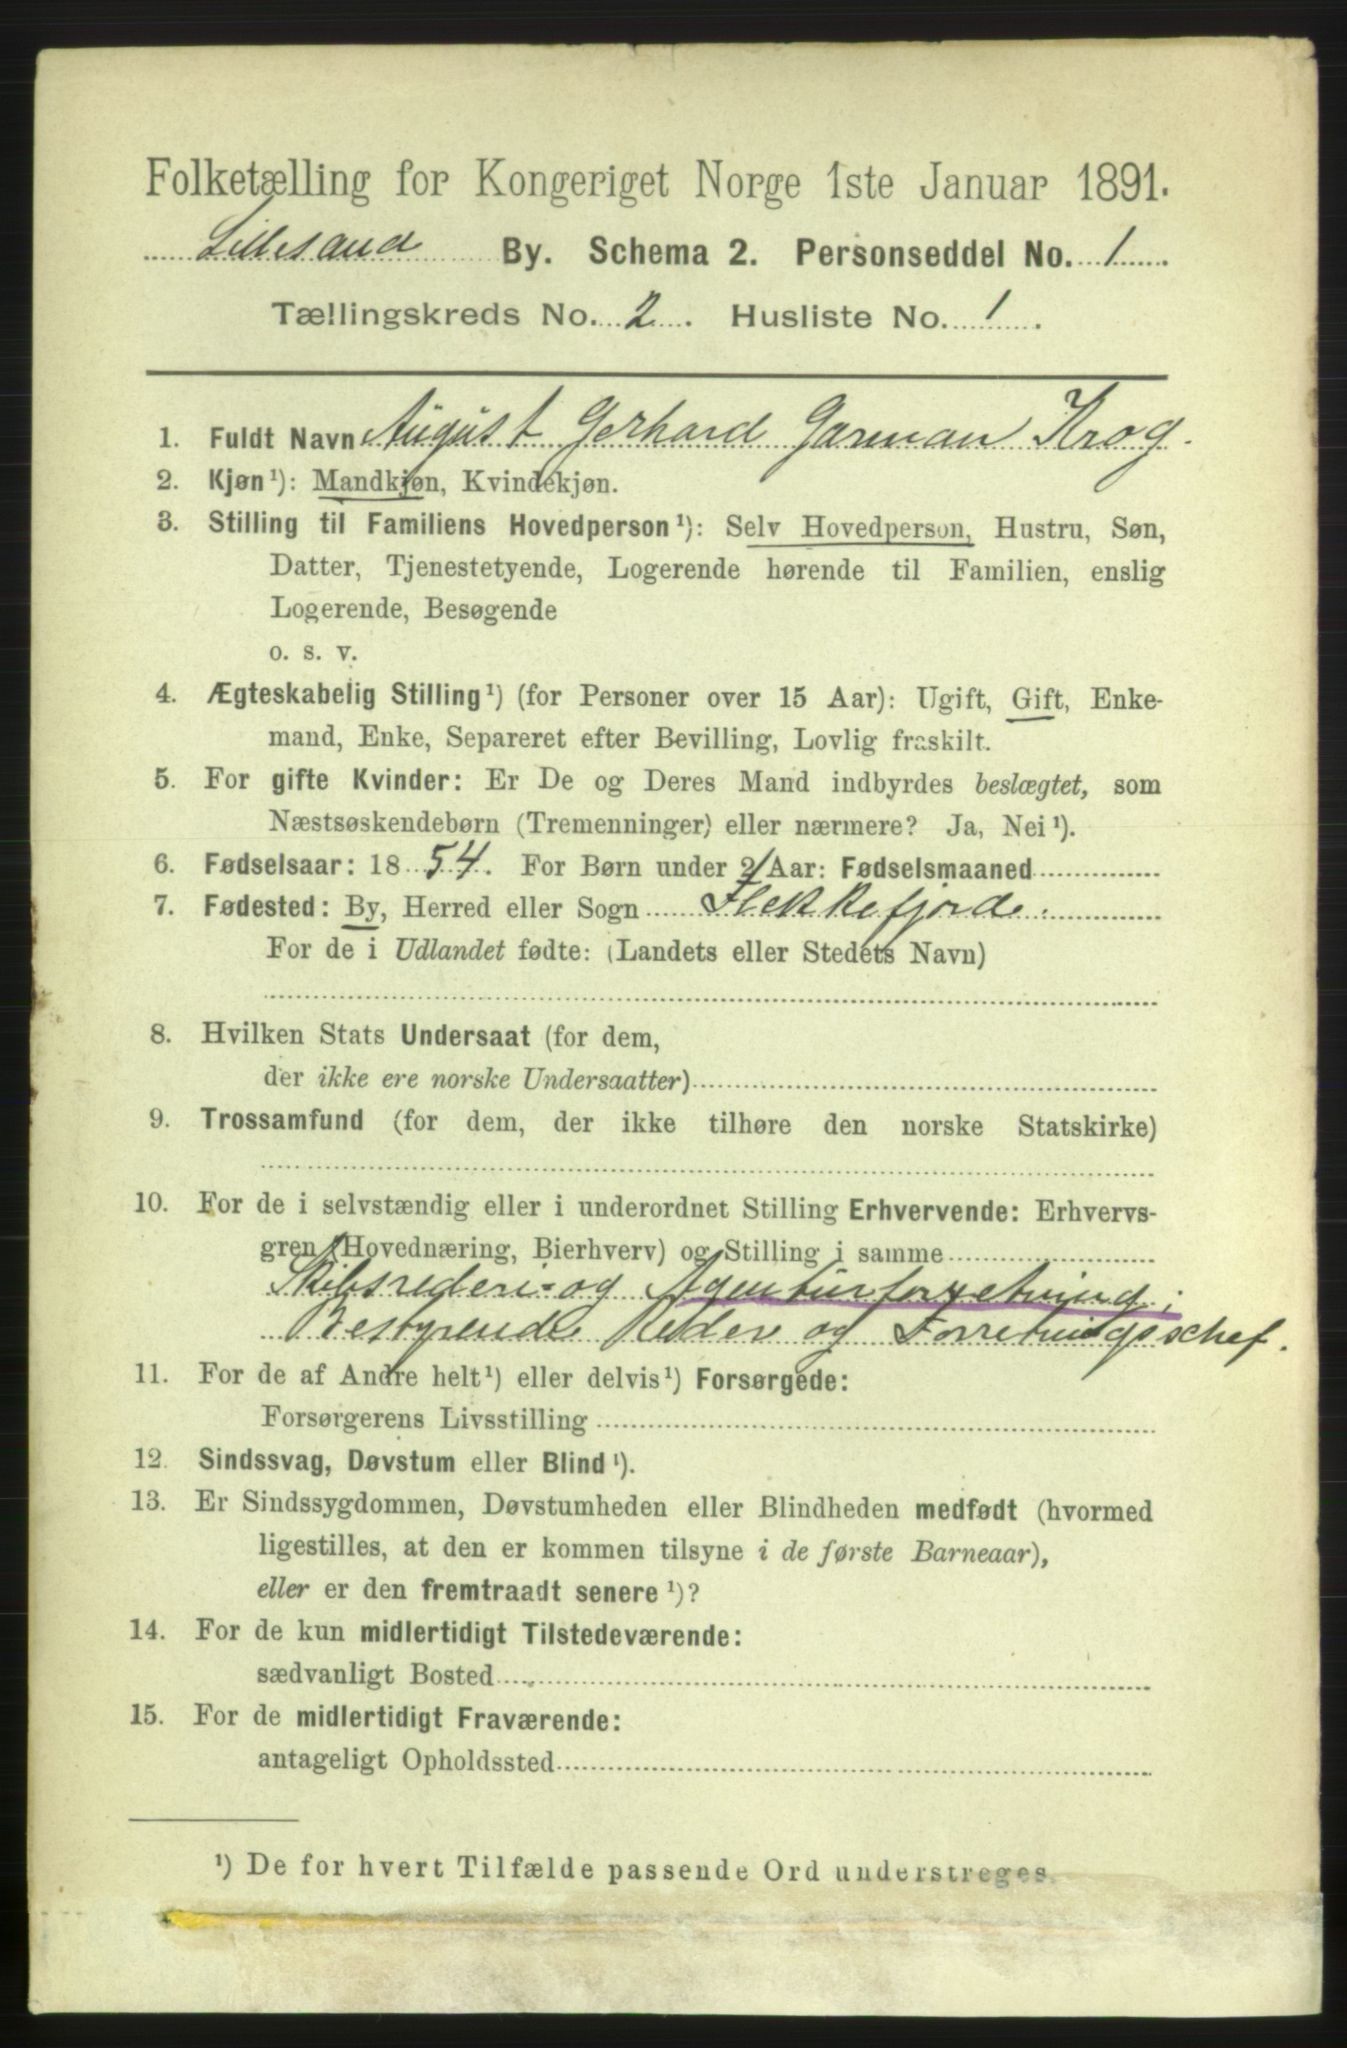 Folketælling for Kongeriget Norge 1ste Januar 1891.
Lillesand By. Schema 2. Personseddel No. 1
Tællingskreds No. 2. Husliste No. 1.
1. Fuldt Navn August Gerhard Garman Krog.
2. Kjøn¹): Mandkjøn, Kvindekjøn.
3. Stilling til Familiens Hovedperson¹): Selv Hovedperson, Hustru, Søn,
Datter, Tjenestetyende, Logerende hørende til Familien, enslig
Logerende, Besøgende
o. s. v.
4. Ægteskabelig Stilling¹) (for Personer over 15 Aar): Ugift, Gift, Enke-
mand, Enke, Separeret efter Bevilling, Lovlig fraskilt.
5. For gifte Kvinder: Er De og Deres Mand indbyrdes beslægtet, som
Næstsøskendebørn (Tremenninger) eller nærmere? Ja, Nei¹).
6. Fødselsaar: 1854. For Børn under 2 Aar: Fødselsmaaned
7. Fødested: By, Herred eller Sogn Flekkefjord.
For de i Udlandet fødte: (Landets eller Stedets Navn)
8. Hvilken Stats Undersaat (for dem,
der ikke ere norske Undersaatter)
9. Trossamfund (for dem, der ikke tilhøre den norske Statskirke)
10. For de i selvstændig eller i underordnet Stilling Erhvervende: Erhvervs-
gren (Hovednæring, Bierhverv) og Stilling i samme
Skibsrederi- og Agenturforretning;
Bestyrende Reder og Forretningsschef.
11. For de af Andre helt¹) eller delvis¹) Forsørgede:
Forsørgerens Livsstilling
12. Sindssvag, Døvstum eller Blind¹).
13. Er Sindssygdommen, Døvstumheden eller Blindheden medfødt (hvormed
ligestilles, at den er kommen tilsyne i de første Barneaar),
eller er den fremtraadt senere¹)?
14. For de kun midlertidigt Tilstedeværende:
sædvanligt Bosted
15. For de midlertidigt Fraværende:
antageligt Opholdssted
¹) De for hvert Tilfælde passende Ord understreges.